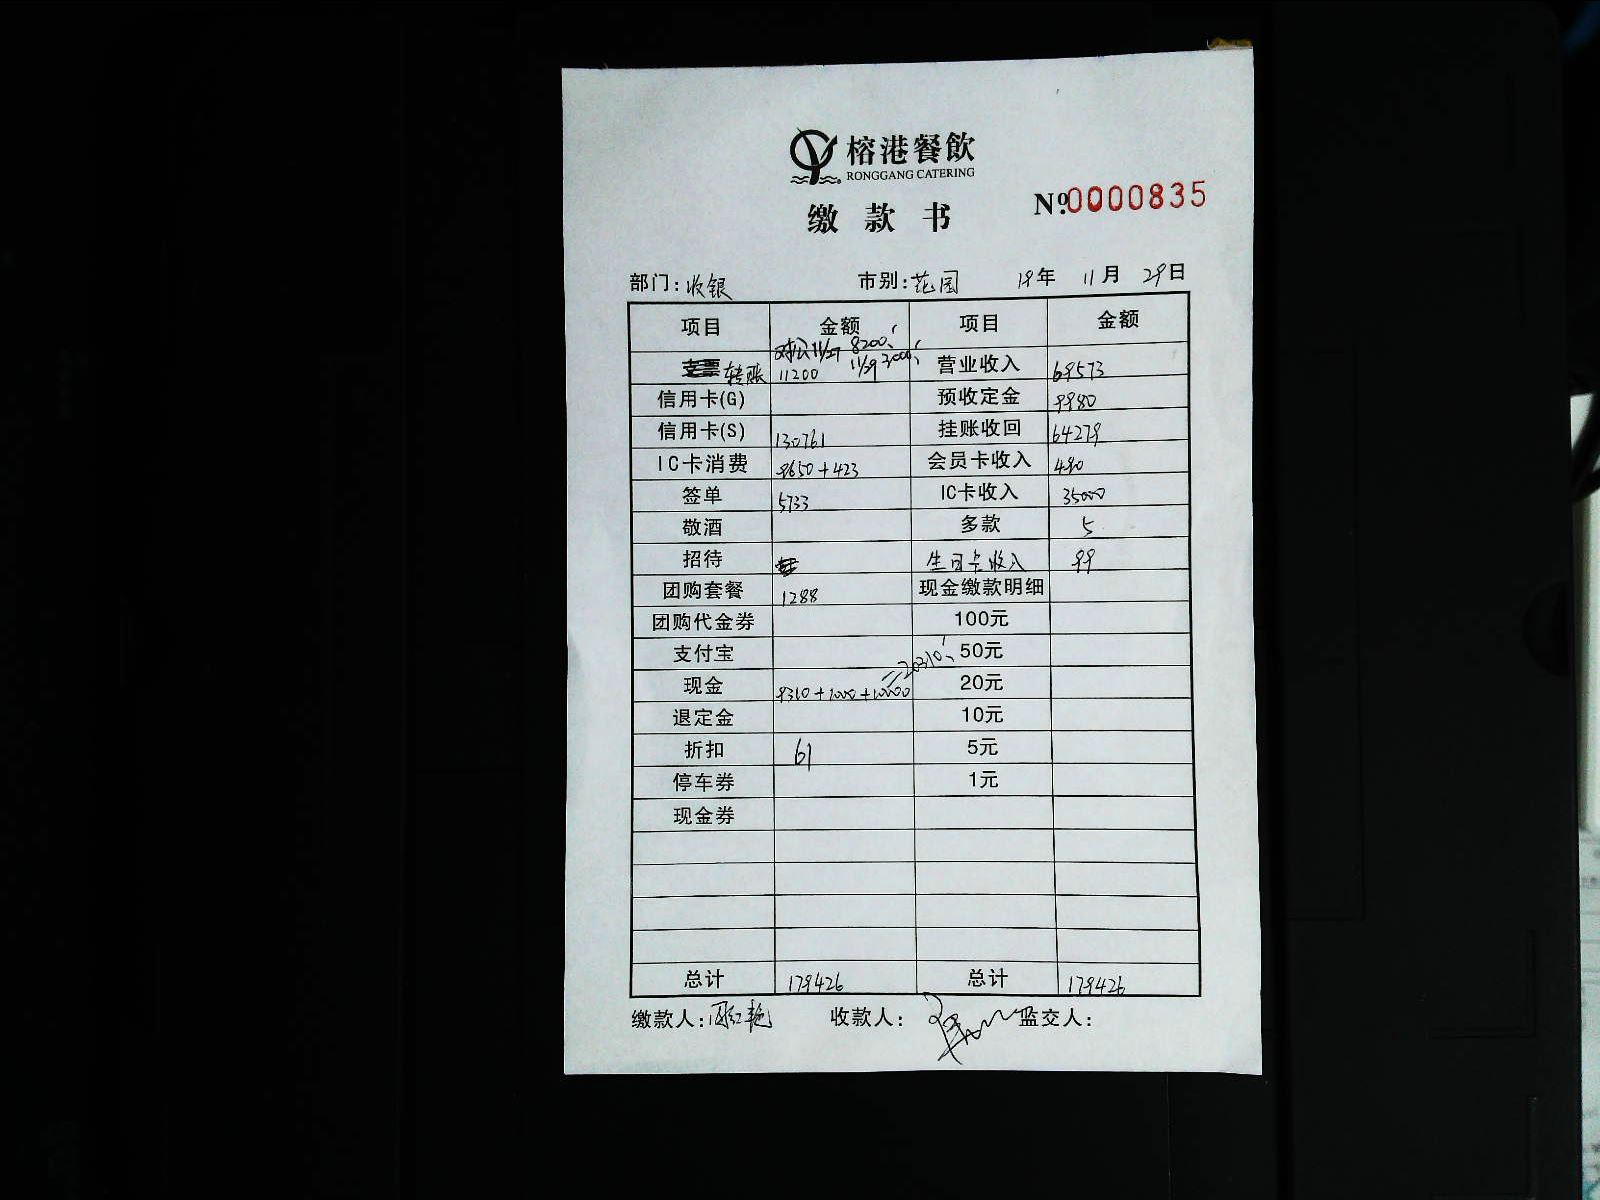 榕港餐飲
RONGGANG CATERING
缴款书
№0000835
部门：收银 市别：花园 19年 11月 29日
项目 金额 项目 金额
对公 11/27 8200、
11/29 3000、
转账 11200 营业收入 69573
信用卡(G) 预收定金 9980
信用卡(S) 130761 挂账收回 64279
IC卡消费 9650+423 会员卡收入 490
签单 5733 IC卡收入 35000
敬酒 多款 5
招待 生日卡收入 99
团购套餐 1288 现金缴款明细
团购代金券 100元
支付宝 50元
现金 9310+1000+10000=20310、 20元
退定金 10元
折扣 61 5元
停车券 1元
现金券
总计 179426 总计 179426
缴款人： 收款人： 监交人：